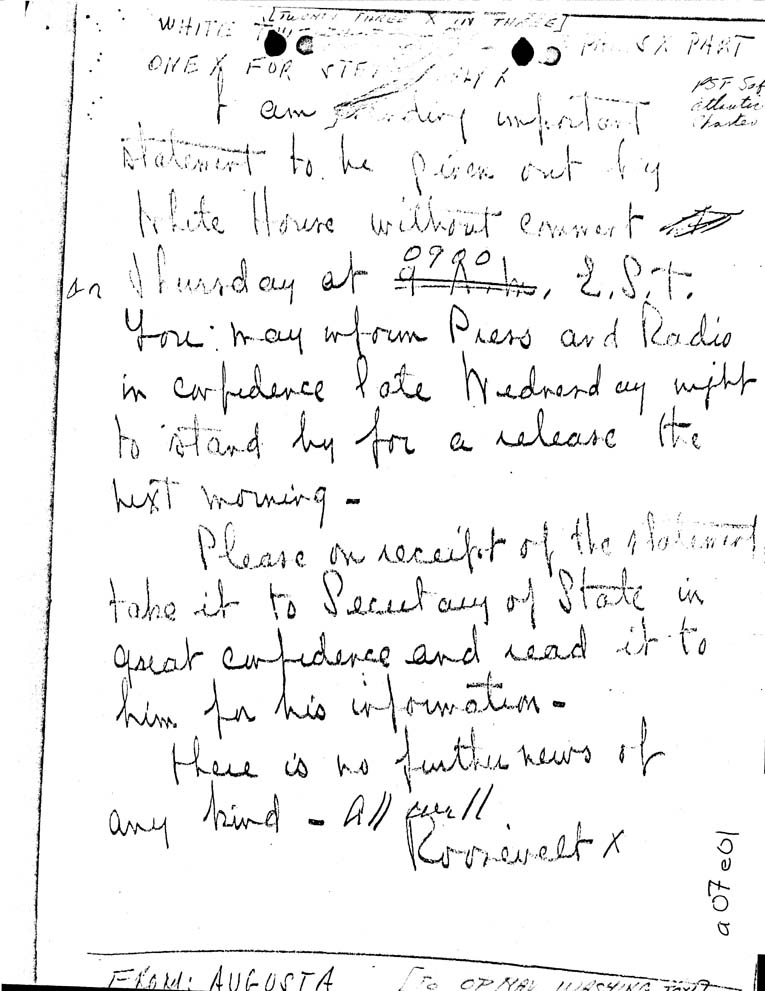 [TWENTY THREE X IN THREE]
WHITE PART
ONE X FOR
PSF Saf
Atlantic
Charter
I am sending important
statement to be given out by
White House without comment
on Thursday at 0900 9 A.M., E.S.T.
You may inform Press and Radio
in confidence late Wednesday night
to stand by for a release the
next morning -
Please on receipt of the statement
take it to Secretary of State in
great confidence and read it to
him for his information -
There is no further news of
any kind - All well
Roosevelt X
a07e01
FROM: AUGUSTA [TO OPNAV WASHING